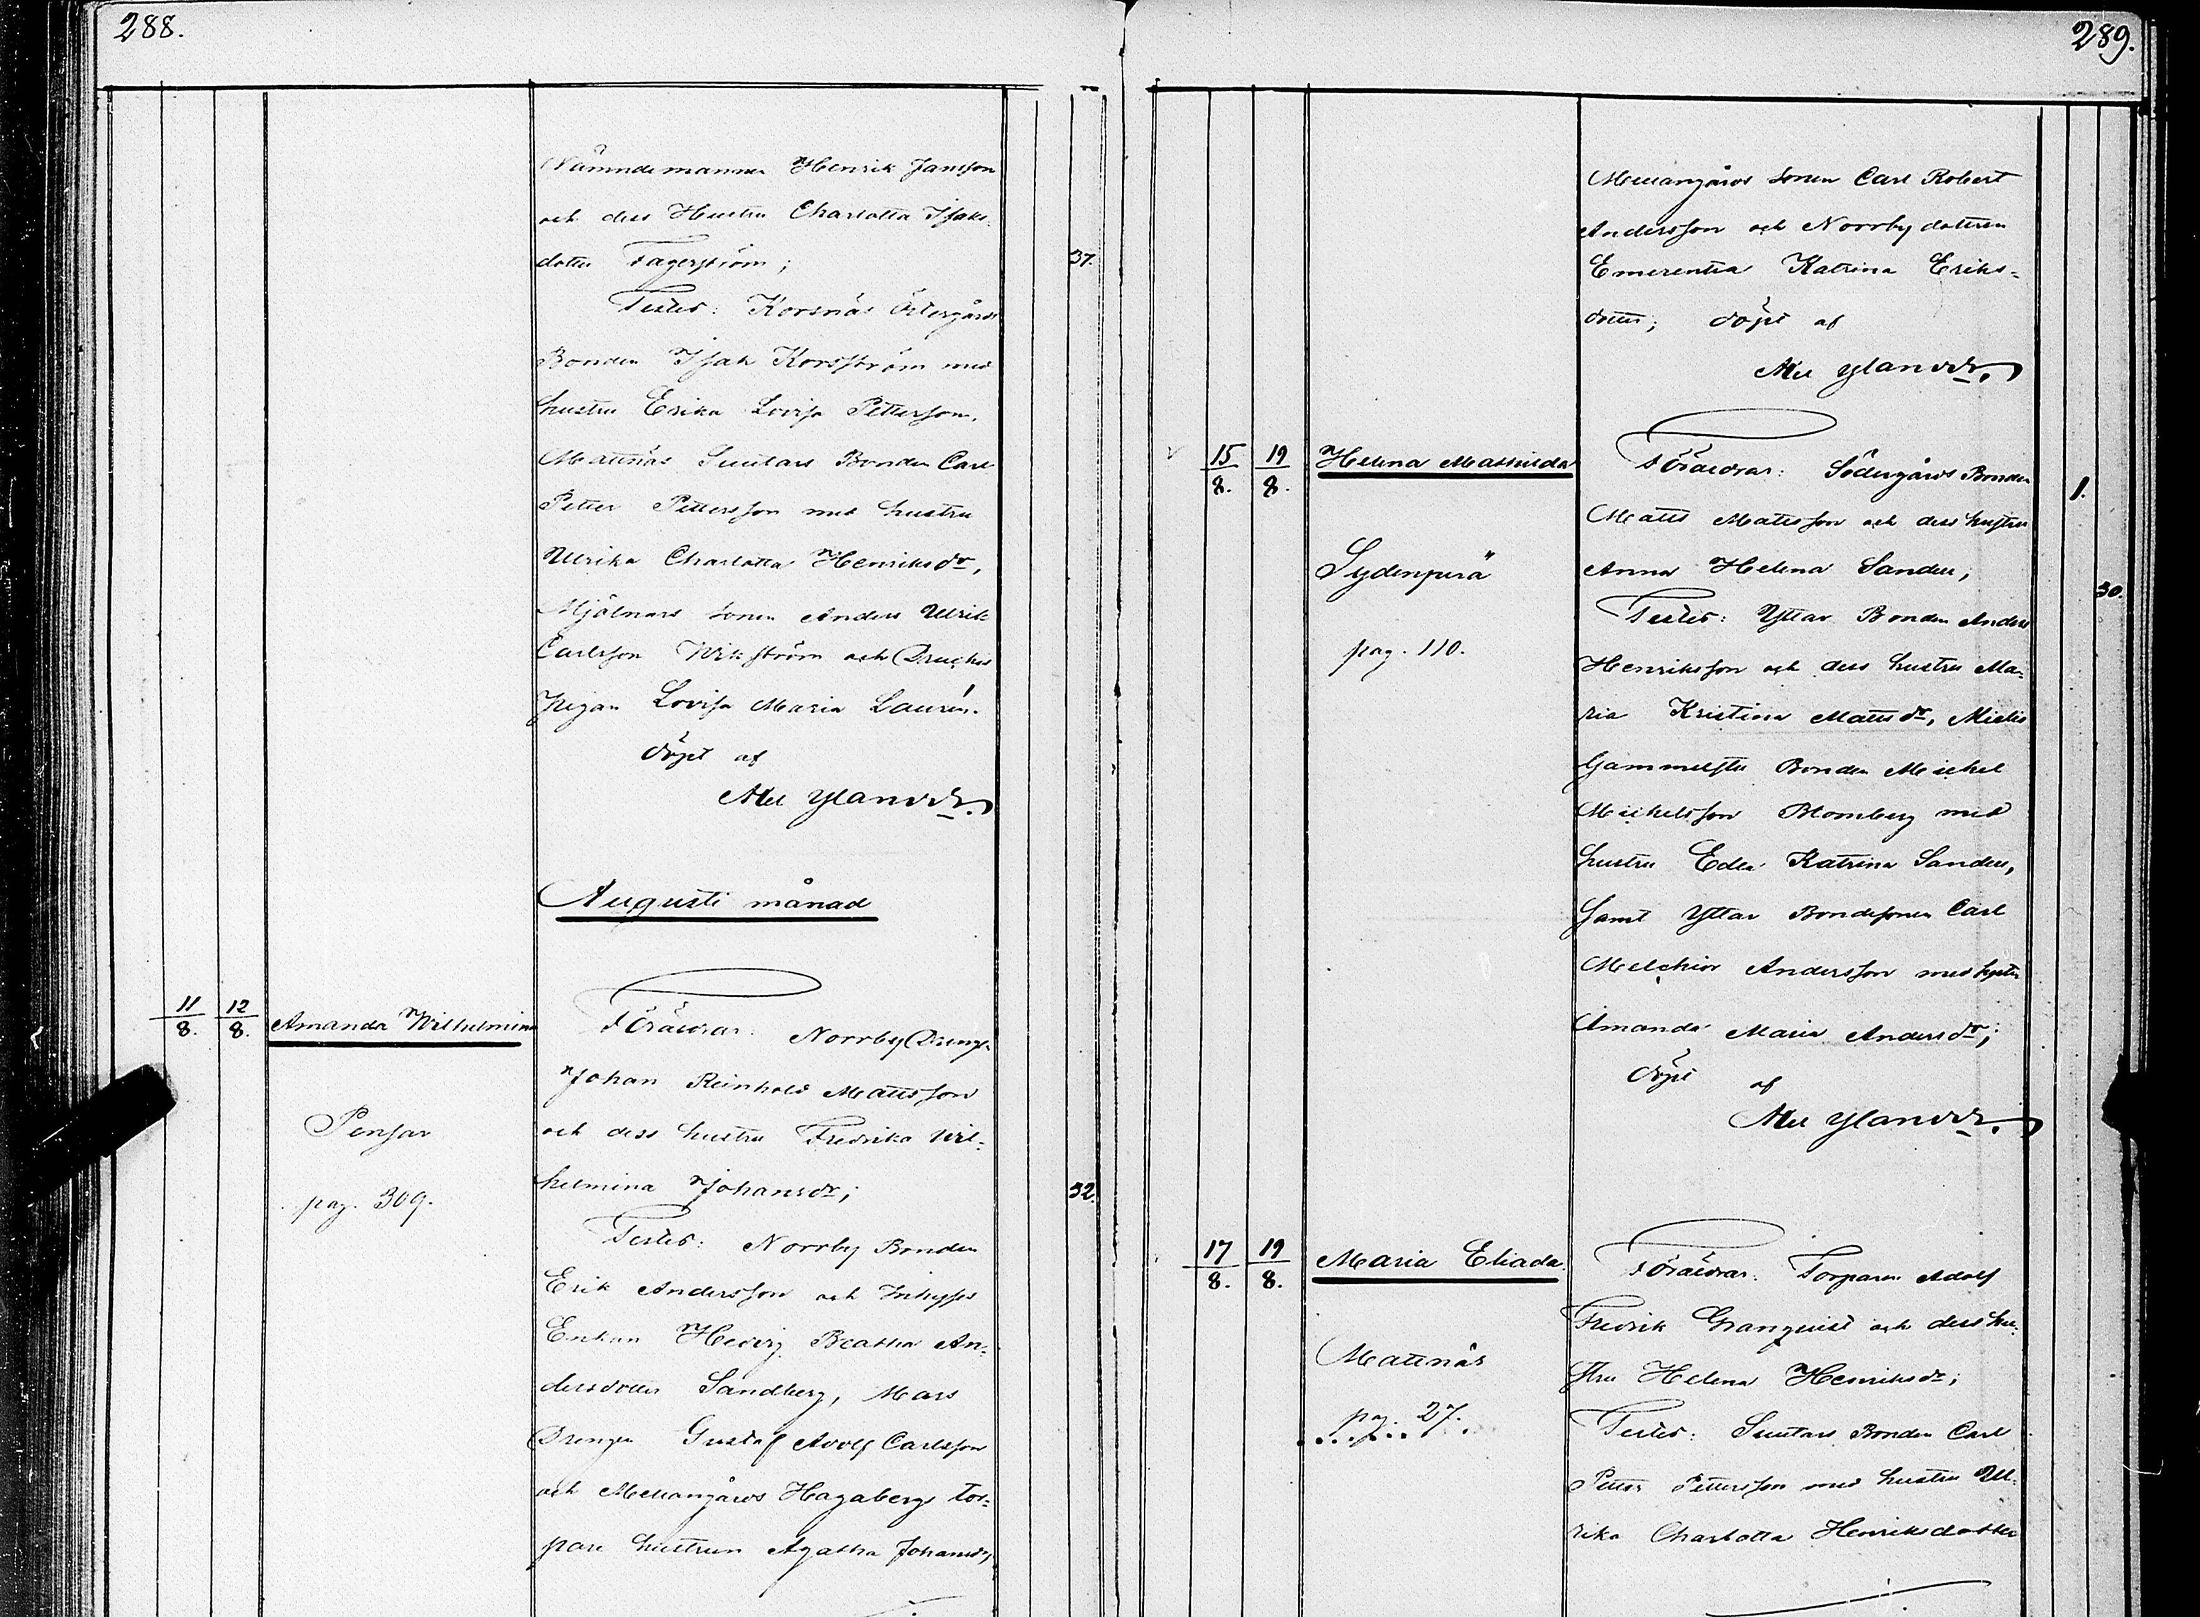 288.
Nämndemannen Henrik Jansson
och dess Hustru Charlotta Isaks
dotter Fagerström; 37.
Testes: Korsnäs Östergårds
Bonden Isak Korsström med
hustru Erika Lovisa Pettersson.
Mattnäs Simtars Bonden Carl
Petter Pettersson med hustru
Ulrika Charlotta Henriksdr,
Mjölnars sonen Anders Ulrik
Carlsson Wikström och
Pigan Lovisa Maria Laurén.
döpt af
Ylander.
Augusti månad
11/8. 12/8. Amanda Wilhelmina
Föräldrar: Norrby Dreng
Johan Reinhold Mattsson
och dess hustru Fredrika Wil-
helmina Johansdr; 32.
Pensar
pag. 309.
Testes: Norrby Bonden
Erik Andersson och Inhyses
Enkan Hedvig Beatha An-
dersdotter Sandberg, Mars
Drengen Gustaf Adolf Carlsson
och Mellangårds Hagabergs tor-
pare hustrun Agatha Johansdr,
289.
Mellangårds sonen Carl Robert
Andersson och Norrby dottren
Emerentia Katrina Eriks-
dotter; döpt af
Ylander.
15/8. 19/8. Helena Mathilda
Föräldrar: Södergårds Bonden 1.
Matts Mattsson och dess hustru
Anna Helena Sander; 30.
Sydenperä
pag. 110.
Testes: Yttar Bonden Anders
Henriksson och dess hustru Ma-
ria Kristina Mattsdr, Mielis
Gammelstu Bonden Michel
Michelsson Blomberg med
hustru Edla Katrina Sander,
samt Yttar Bondesonen Carl
Melchior Andersson med syster
Amanda Maria Andersdr;
döpt af
Ylander.
17/8. 19/8. Maria Eliada.
Föräldrar: Torparen Adolf
Fredrik Granqvist och dess hu-
stru Helena Henriksdr;
Mattnäs
pag. 27.
Testes: Simtars Bonden Carl
Petter Pettersson med hustru Ul-
rika Charlotta Henriksdotter